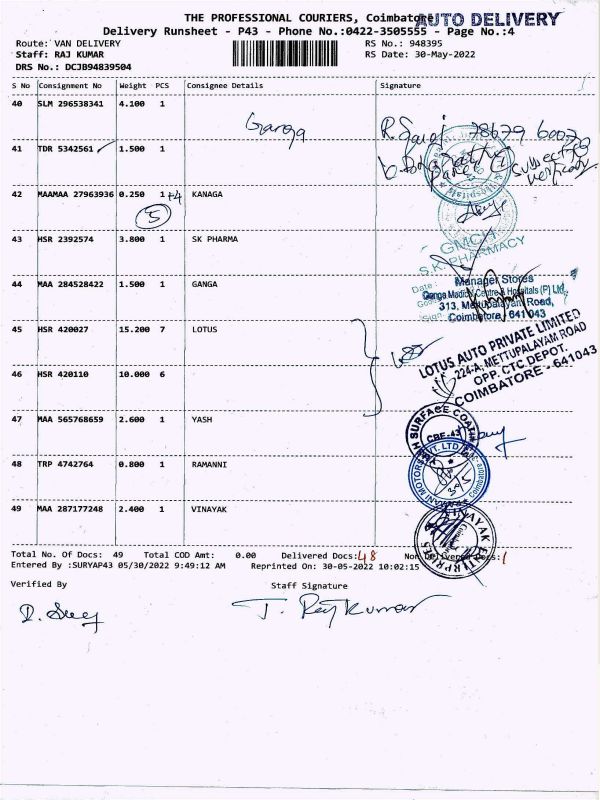 THE PROFESSIONAL COURIERS, Coimbatore
AUTO DELIVERY
Delivery Runsheet - P43 - Phone No.:0422-3505555 - Page No.:4
Route: VAN DELIVERY RS No.: 948395
Staff: RAJ KUMAR RS Date: 30-May-2022
DRS No.: DCJB94839504
S No Consignment No Weight PCS Consignee Details Signature
40 SLM 296538341 4.100 1 Ganga
41 TDR 5342561 1.500 1
42 MAAMAA 27963936 0.250 1+4 KANAGA
5
43 HSR 2392574 3.800 1 SK PHARMA
GMCH
S.K. PHARMACY
44 MAA 284528422 1.500 1 GANGA
Date:
Manager Stores
Ganga Medical Centre & Hospitals (P) Ltd,
313, Mettupalayam Road,
Coimbatore, 641043
45 HSR 420027 15.200 7 LOTUS
LOTUS AUTO PRIVATE LIMITED
224-A, METTUPALAYAM ROAD
OPP. CTC DEPOT.
COIMBATORE - 641043
46 HSR 420110 10.000 6
47 MAA 565768659 2.600 1 YASH
CBE-43
48 TRP 4742764 0.800 1 RAMANNI
49 MAA 287177248 2.400 1 VINAYAK
Total No. Of Docs: 49 Total COD Amt: 0.00 Delivered Docs: 48 Non Delivered Docs: 1
Entered By :SURYAP43 05/30/2022 9:49:12 AM Reprinted On: 30-05-2022 10:02:15
Verified By Staff Signature
J. Raj Kumar